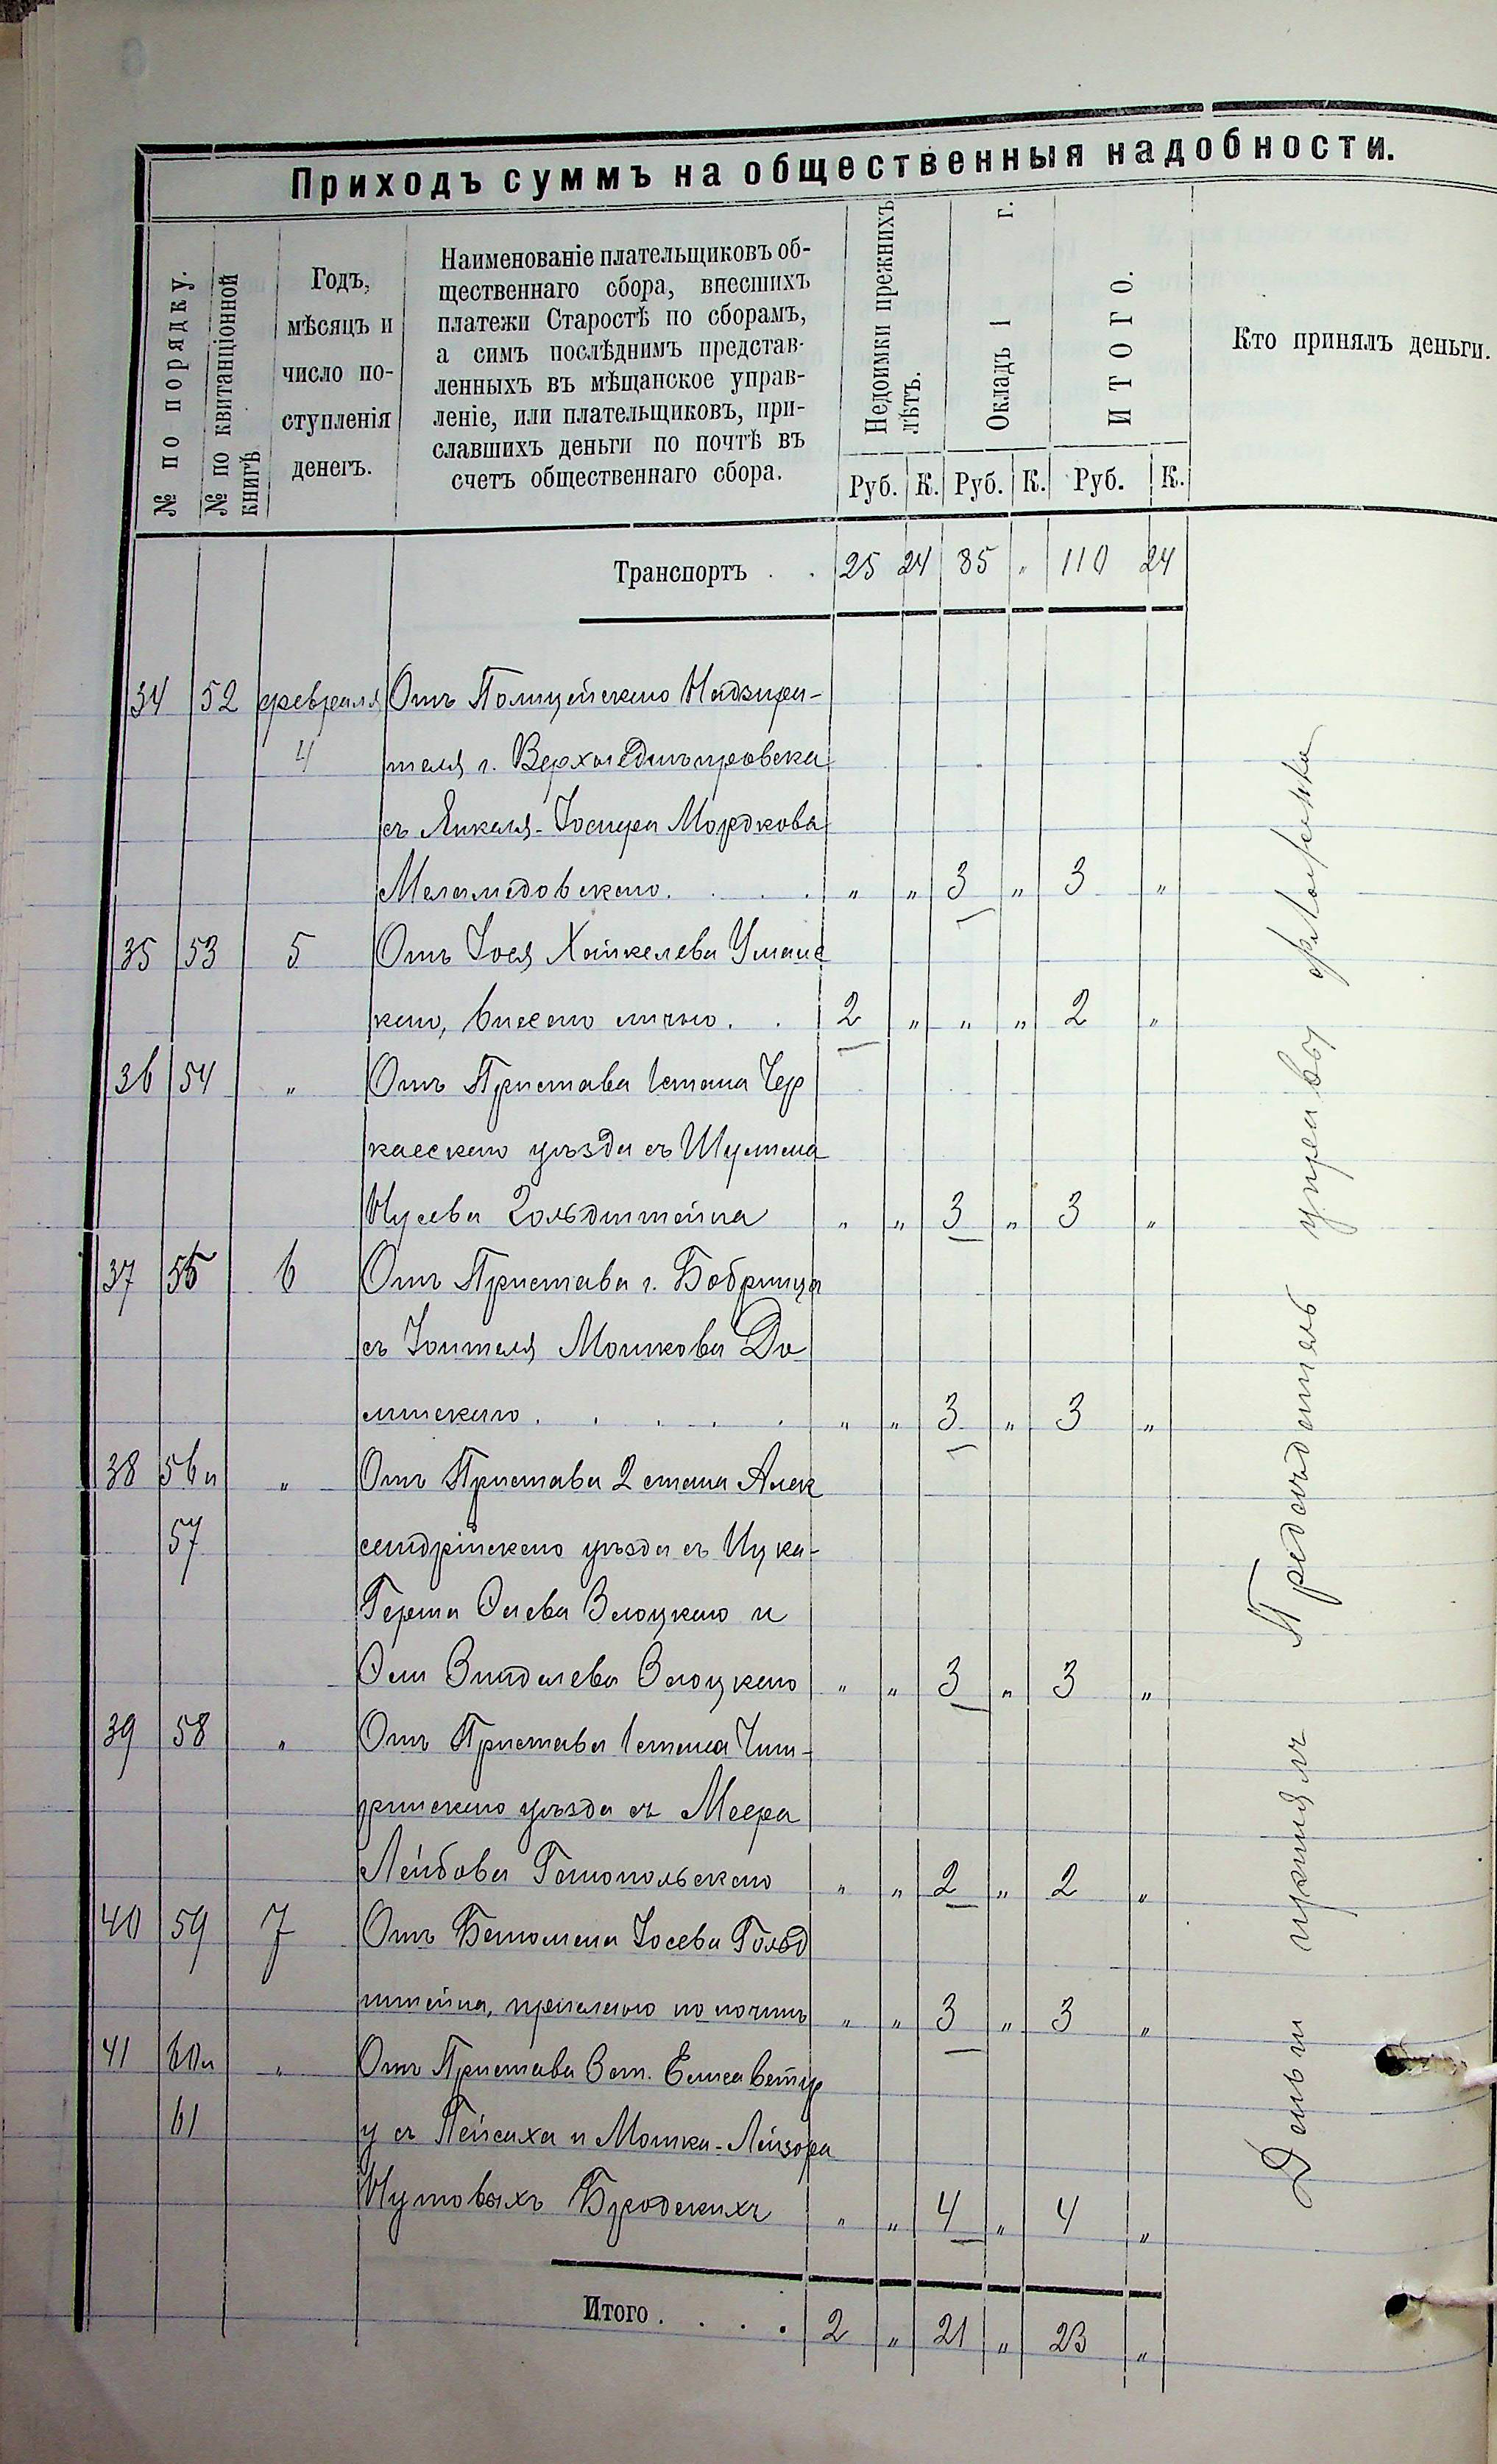 Приходъ суммъ на общественныя надобности.
№ по порядку.
№ по квитанціонной
книгѣ
Годъ,
мѣсяцъ и
число по-
ступленія
денегъ.
Наименованіе плательщиковъ об-
щественнаго сбора, внесшихъ
платежи Старостѣ по сборамъ,
а симъ послѣднимъ представ-
ленныхъ въ мѣщанское управ-
леніе, или плательщиковъ, при-
славшихъ деньги по почтѣ въ
счетъ общественнаго сбора.
Недоимки прежнихъ
лѣтъ.
Окладъ 1 г.
ИТОГО.
Кто принялъ деньги.
Руб. К. Руб. К. Руб. К.
Транспортъ . . 25 24 85 " 110 24
34 52 февраля Отъ Полицейскаго Надзира-
4 теля г. Верхнеднѣпровска
съ Янкеля-Іосифа Мордкова
Меламедовскаго . . . . " " 3 " 3 "
35 53 5 Отъ Іося Хайкелева Уманс
каго, внесено лично . . 2 " " " 2 "
36 54 " Отъ Пристава 1 стана Чер
касскаго уѣзда съ Шулима
Нусева Гольдштейна " " 3 " 3 "
37 55 6 Отъ Пристава г. Бобринца
съ Іоителя Мошкова До
линскаго . . . . . " " 3 " 3 "
38 56 и " Отъ Пристава 2 стана Алек
57 сандрійскаго уѣзда съ Ицка-
Герша Элева Злоцкаго и
Эли Зиндилева Злоцкаго " " 3 " 3 "
39 58 " Отъ Пристава 1 стана Чиги-
ринскаго уѣзда съ Меера
Лейбова Гонопольскаго " " 2 " 2 "
40 59 7 Отъ Бенюмена Іосева Гольд
штейна, прислано по почтѣ " " 3 " 3 "
41 60 и " Отъ Пристава 3 ст. Елисаветгр
61 у съ Пейсаха и Мошка-Лейзора
Нутовыхъ Бродскихъ " " 4 " 4 "
Итого . . . . 2 " 21 " 23 "
Деньги принялъ Предсѣдатель управы